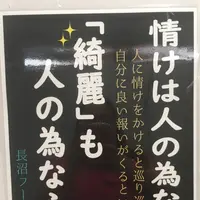 情けは人の為な
人に情けをかけると巡り巡
自分に良い報いがくると
「綺麗」も
人の為な
長沼フー